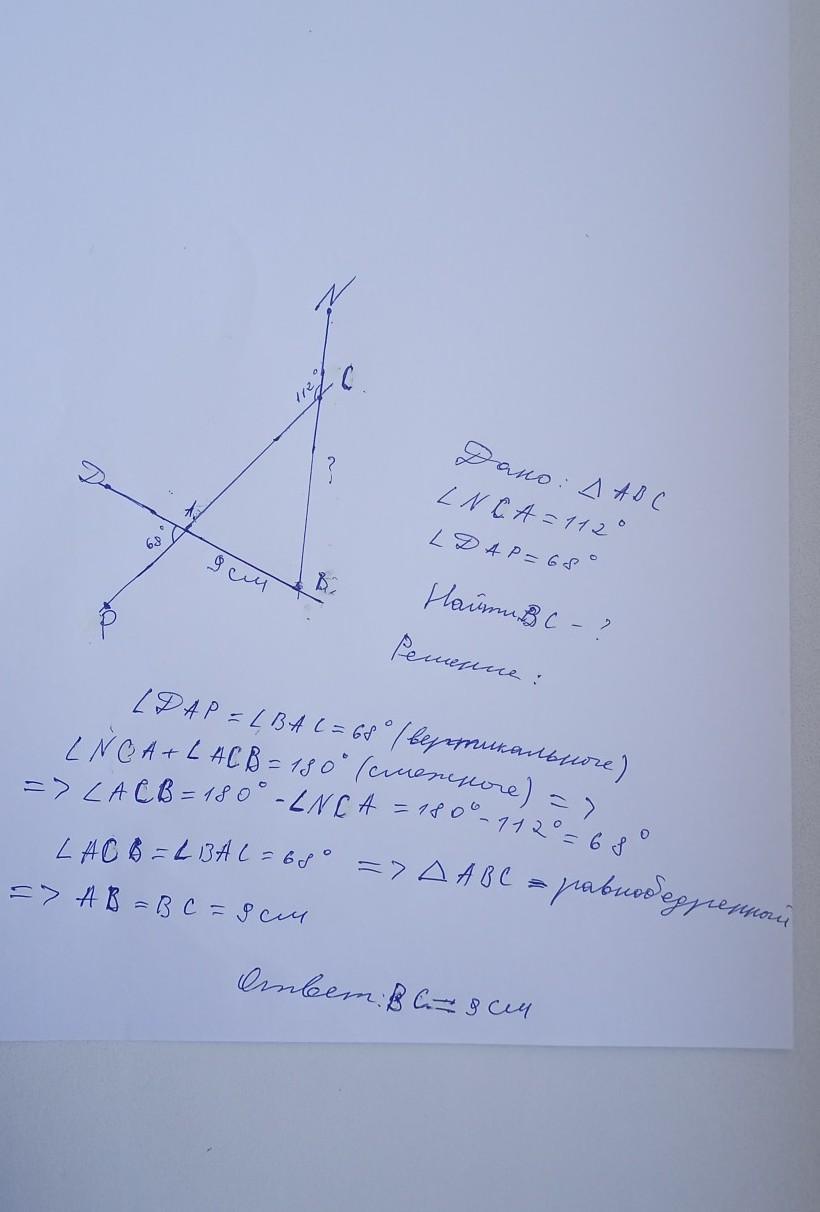 N
C
112°
?
D
A
68°
9 см
B
P
Дано: △ ABC
∠NCA = 112°
∠DAP = 68°
Найти BC - ?
Решение:
∠DAP = ∠BAC = 68° (вертикальные)
∠NCA + ∠ACB = 180° (смежные) =>
=> ∠ACB = 180° - ∠NCA = 180° - 112° = 68°
∠ACB = ∠BAC = 68° => △ ABC - равнобедренный
=> AB = BC = 9 см
Ответ: BC = 9 см